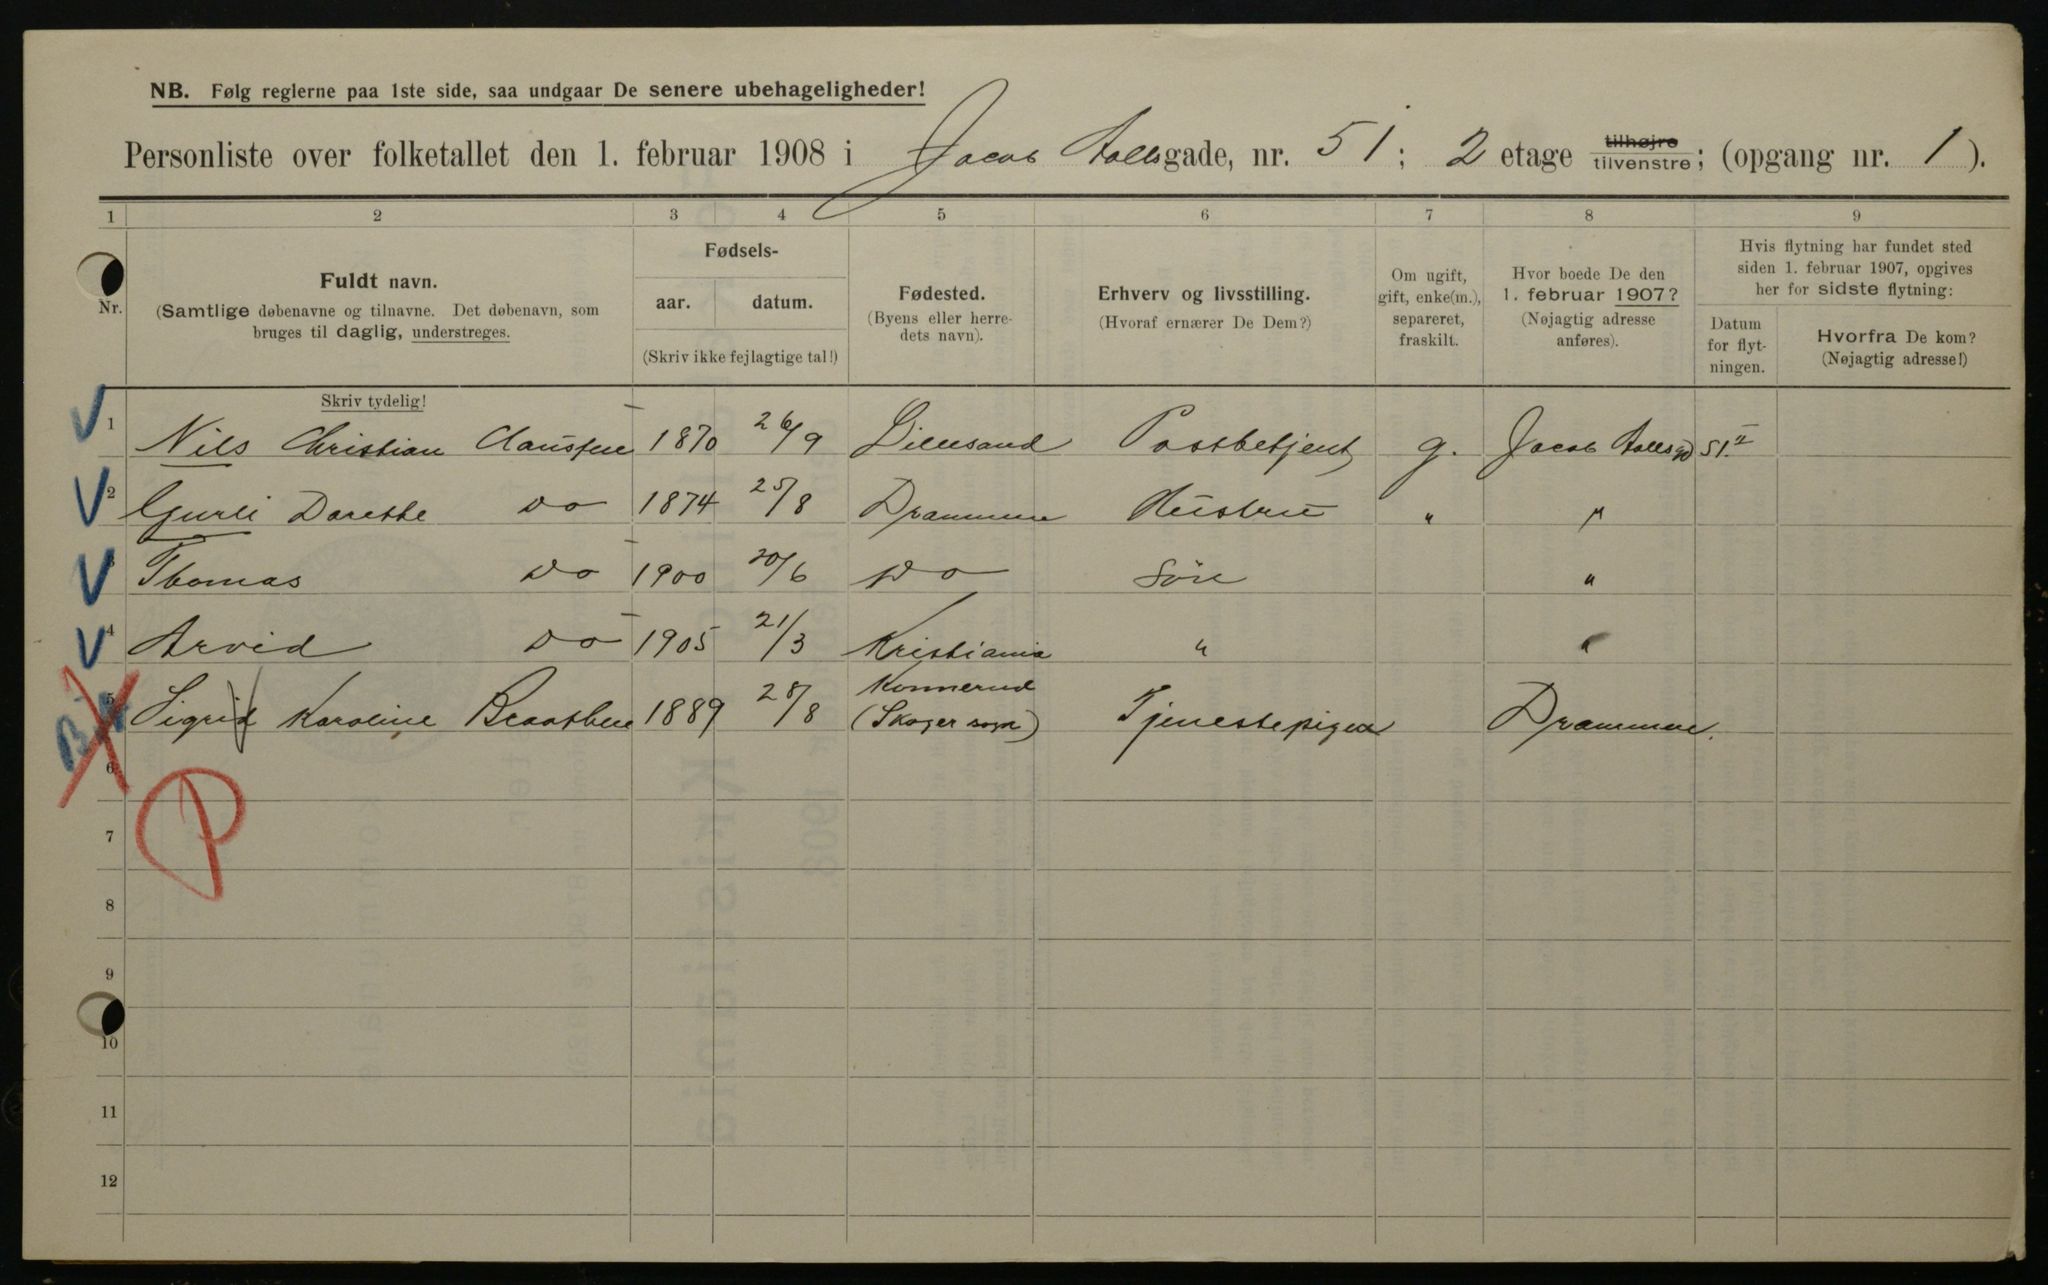 NB. Følg reglerne paa 1ste side, saa undgaar De senere ubehageligheder!
Personliste over folketallet den 1. februar 1908 i Jacob Aallsgade, nr. 51; 2 etage tilhøjre tilvenstre; (opgang nr. 1).
1 2 3 4 5 6 7 8 9
Nr.
Fuldt navn.
(Samtlige døbenavne og tilnavne. Det døbenavn, som
bruges til daglig, understreges.
Skriv tydelig!
Fødsels-
aar. datum.
(Skriv ikke fejlagtige tal!)
Fødested.
(Byens eller herre-
dets navn).
Erhverv og livsstilling.
(Hvoraf ernærer De Dem?)
Om ugift,
gift, enke(m.),
separeret,
fraskilt.
Hvor boede De den
1. februar 1907?
(Nøjagtig adresse
anføres).
Hvis flytning har fundet sted
siden 1. februar 1907, opgives
her for sidste flytning:
Datum
for flyt-
ningen.
Hvorfra De kom?
(Nøjagtig adresse!)
1 Nils Christian Clausen 1870 26/9 Lillesand Postbetjent g. Jacob Aallsgd 51.II
2 Gurli Dorethe Do 1874 25/8 Drammen Hustru " "
3 Thomas Do 1900 20/6 Do Søn "
4 Arvid Do 1905 21/3 Kristiania " "
5 Sigrid Karoline Braathen 1889 28/8 Konnerud (Skoger sogn) Tjenestepige Drammen.
6
P
7
8
9
10
11
12